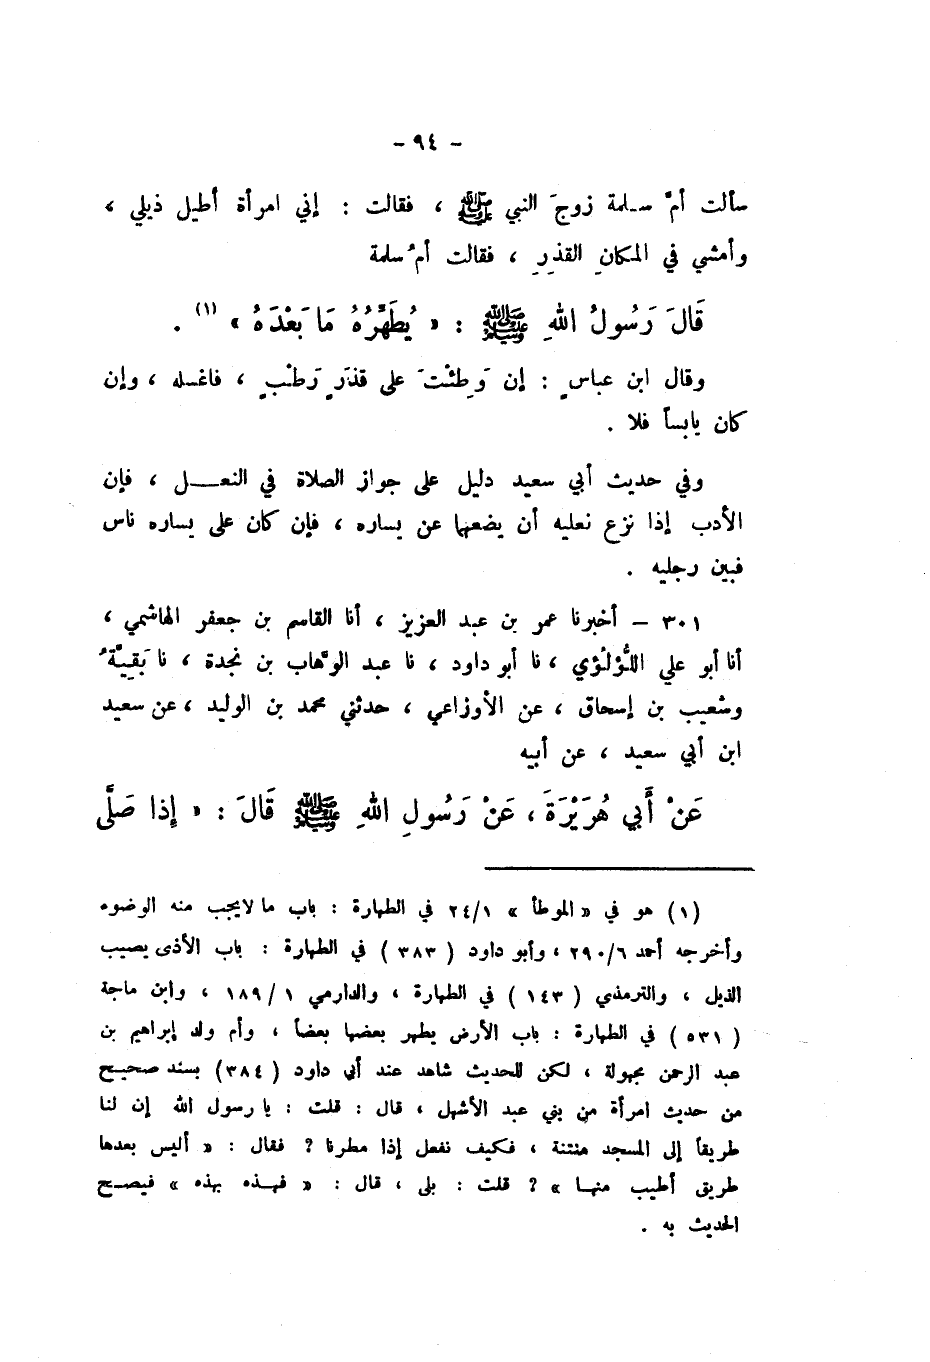 - ٩٤ -
سألت أمَّ سلمة زوجَ النبي ﷺ ، فقالت : إني امرأة أطيل ذيلي ،
وأمشي في المكانِ القذرِ ، فقالت أمُ سلمة
قَالَ رَسُولُ اللهِ ﷺ : « يُطَهِّرُهُ مَا بَعْدَهُ » (١) .
وقال ابن عباسٍ : إن وَطِئْتَ على قذَرٍ رَطْبٍ ، فاغسله ، وإن
كان يابساً فلا .
وفي حديث أبي سعيد دليل على جواز الصلاة في النعل ، فإن
الأدب إذا نزع نعليه أن يضعها عن يساره ، فإن كان على يساره ناس
فبين رجليه .
٣٠١ – أخبرنا عمر بن عبد العزيز ، أنا القاسم بن جعفر الهاشمي ،
أنا أبو علي اللُّؤلُؤي ، نا أبو داود ، نا عبد الوهّاب بن نجدة ، نا بَقِيَّةُ
وشعيب بن إسحاق ، عن الأوزاعي ، حدثني محمد بن الوليد ، عن سعيد
ابن أبي سعيد ، عن أبيه
عَنْ أَبي هُرَيْرَةَ ، عَنْ رَسُولِ اللهِ ﷺ قَالَ : « إِذا صَلَّى
(١) هو في « الموطأ » ٢٤/١ في الطهارة : باب ما لا يجب منه الوضوء
وأخرجه أحمد ٢٩٠/٦ ، وأبو داود ( ٣٨٣ ) في الطهارة : باب الأذى يصيب
الذيل ، والترمذي ( ١٤٣ ) في الطهارة ، والدارمي ١ / ١٨٩ ، وابن ماجة
( ٥٣١ ) في الطهارة : باب الأرض يطهر بعضها بعضاً ، وأم ولد إبراهيم بن
عبد الرحمن مجهولة ، لكن للحديث شاهد عند أبي داود ( ٣٨٤ ) بسند صحيح
من حديث امرأة من بني عبد الأشهل ، قال : قلت : يا رسول الله إن لنا
طريقاً إلى المسجد منتنة ، فكيف نفعل إذا مطرنا ؟ فقال : « أليس بعدها
طريق أطيب منها » ؟ قلت : بلى ، قال : « فهذه بهذه » فيصح
الحديث به .